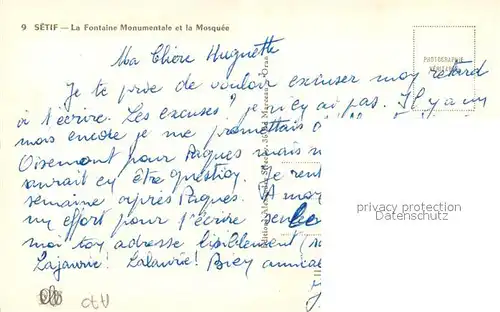 9 SÉTIF — La Fontaine Monumentale et la Mosquée
Ma Chère Huguette
PHOTOGRAPHIE
VÉRITABLE
Je te prie de vouloir excuser mon retard
à t'écrire. Les excuses? je n'en ai pas. Il y a un
mois encore je me promettais
Oisemont pour Pâques mais
saurait en être question. Je
semaine après Pâques. A mon
un effort pour t'écrire
moi ton adresse lisiblement
Lajaurie! Lalaurie! Bien
privacy protection
Datenschutz